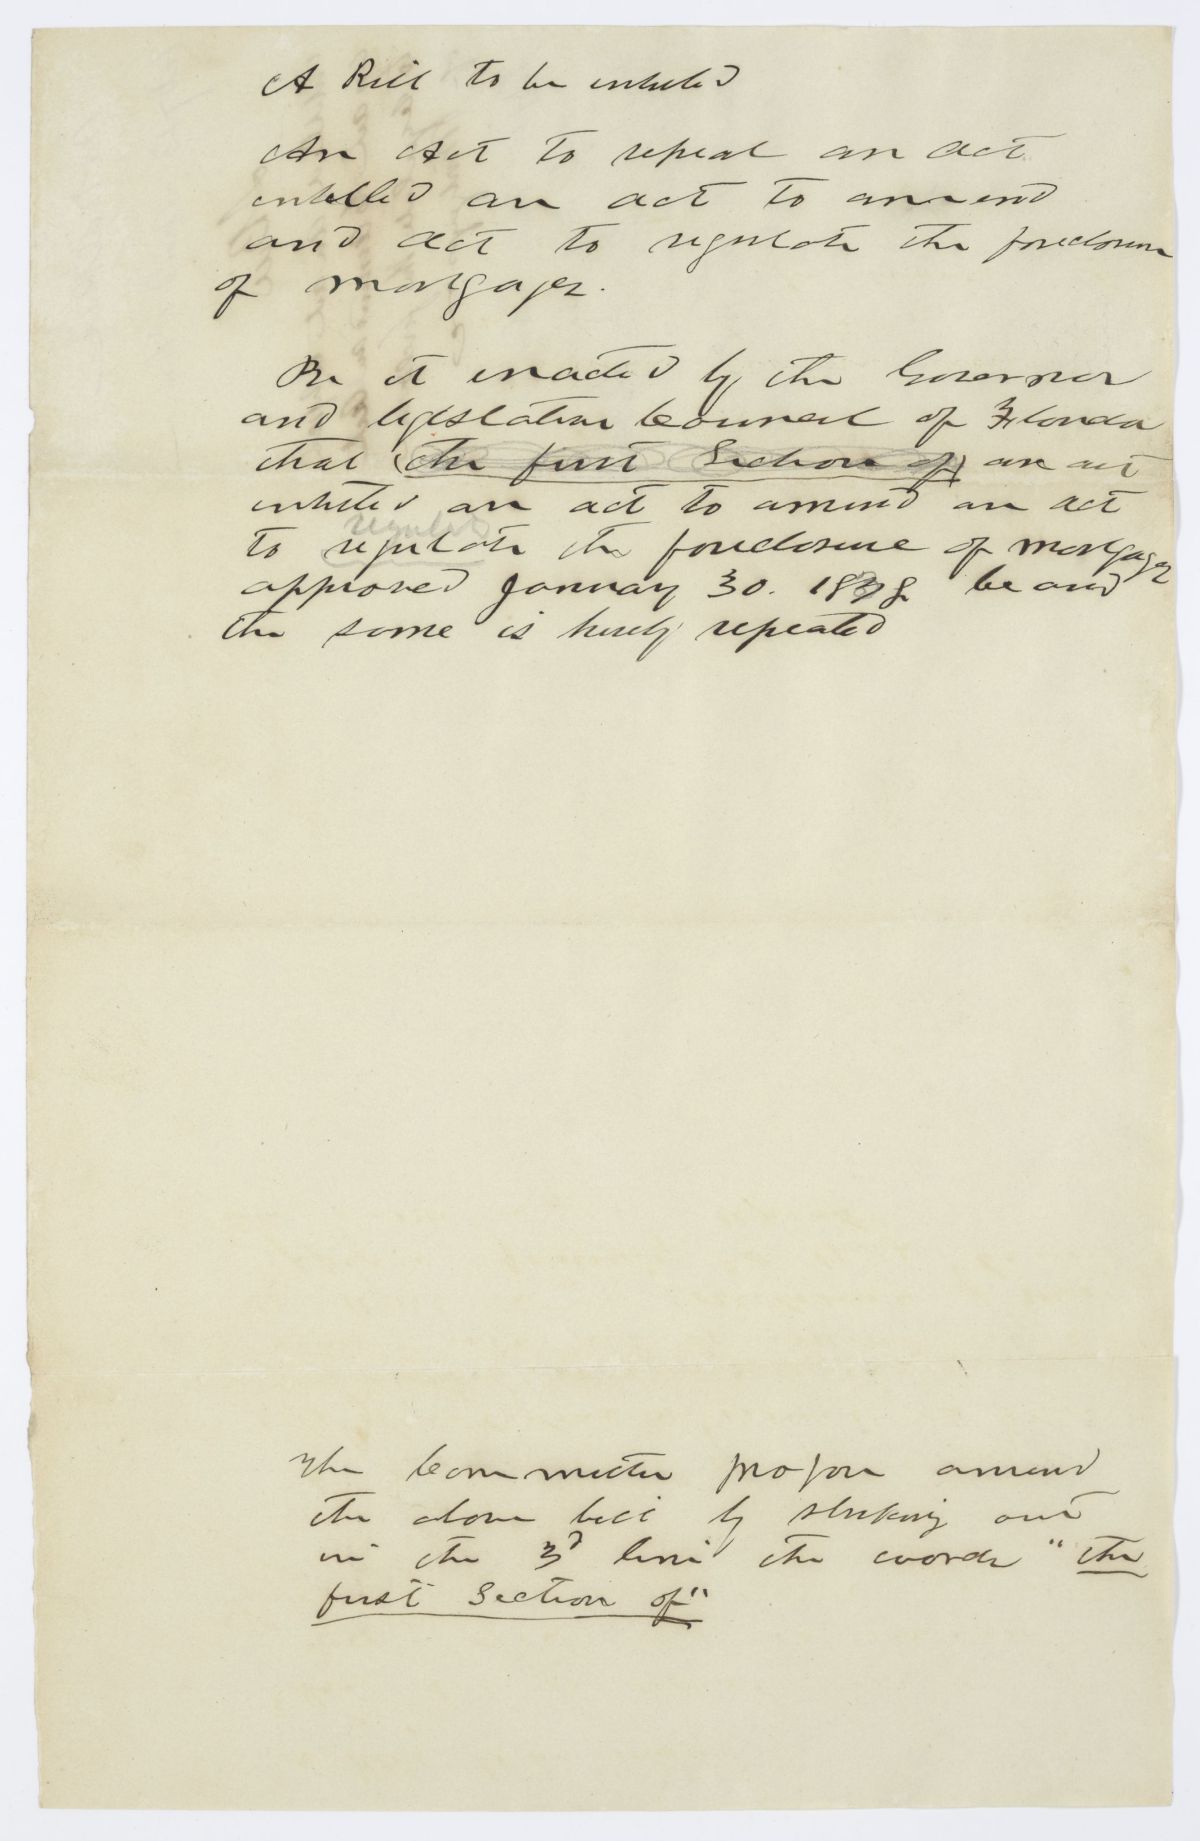 A Bill to be entitled
An Act to repeal an act
entitled an act to amend
and act to regulate the foreclosure
of mortgages.
Be it enacted by the Governor
and legislative Council of Florida
that (the first Section of) an act
entitled an act to amend an act
regulate
to regulate the foreclosure of mortgages
approved January 30. 1838 be and
the same is hereby repealed
The Committee propose amend
the above bill by striking out
in the 3d line the words "the
first Section of"